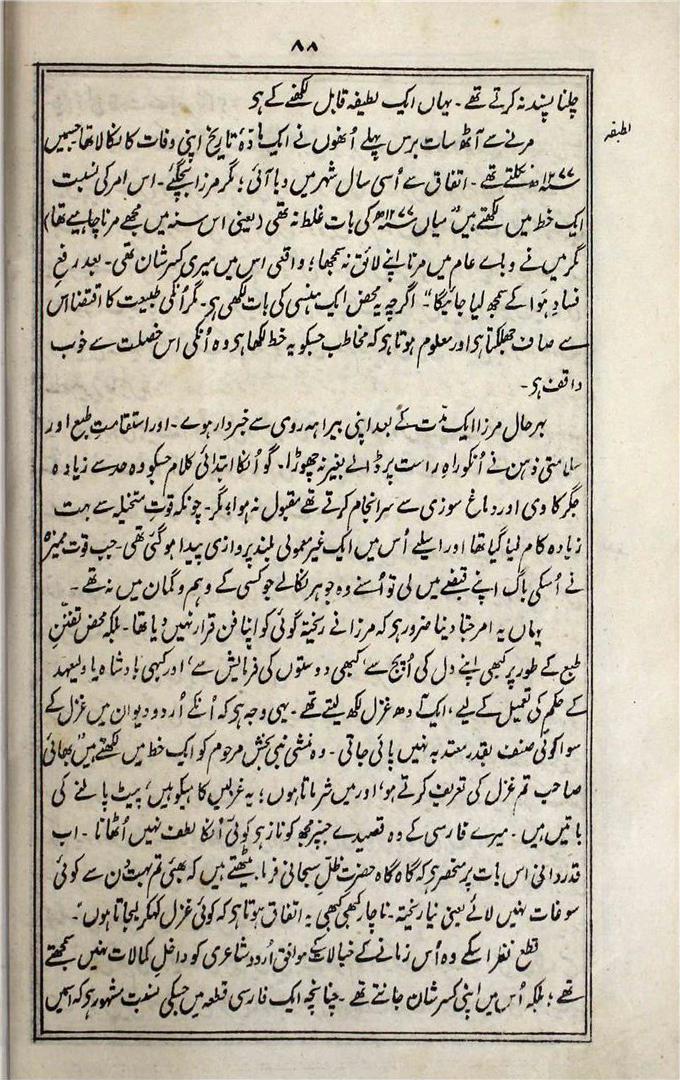 ۸۸
چلنا پسند نہ کرتے تھے ۔ یہاں ایک لطیفہ قابل لکھنے کے ہی
لطیفہ
مرنے سے آٹھ سات برس پہلے اُنھوں نے ایک مادّۂ تاریخ اپنی وفات کا نکالا تھا جسمیں
۱۲۷۷ھ نکلتے تھے ۔ اتفاق سے اُسی سال شہر میں وبا آئی ؛ مگر مرزا بچگئے ۔ اس امر کی نسبت
ایک خط میں لکھتے ہیں "میاں ۱۲۷۷ھ کی بات غلط نہ تھی (یعنی اس سنہ میں مجھے مرنا چاہیے تھا)
مگر میں نے وبائے عام میں مرنا اپنے لائق نہ سمجھا ؛ واقعی اس میں میری کسر شان تھی ۔ بعد رفعِ
فسادِ ہوا کے سمجھ لیا جائیگا" ۔ اگرچہ یہ محض ایک ہنسی کی بات لکھی ہی ۔ مگر اُنکی طبیعت کا اقتضا اس
سے صاف جھلکتا ہی اور معلوم ہوتا ہو کہ مخاطب جسکو یہ خط لکھا ہی وہ اُنکی اس خصلت سے خوب
واقف ہی ۔
بہرحال مرزا ایک مدّت کے بعد اپنی بیراہہ روی سے خبردار ہوے ۔ اور استقامتِ طبع اور
سلامتی ذہن نے اُنکو راہِ راست پر ڈالے بغیر نہ چھوڑا ۔ گو اُنکا ابتدائی کلام جسکو وہ حد سے زیادہ
جگر کاوی اور دماغ سوزی سے سرانجام کرتے تھے مقبول نہ ہوا ؛ مگر ۔ چونکہ قوتِ متخیلہ سے بہت
زیادہ کام لیا گیا تھا اور اسلیے اُس میں ایک غیر معمولی بلند پروازی پیدا ہوگئی تھی ۔ جب قوت ممیّزہ
نے اُسکی باگ اپنے قبضے میں لی تو اُسنے وہ جوہر نکالے جو کسی کے وہم و گمان میں نہ تھے ۔
یہاں یہ امر جتا دینا ضرور ہو کہ مرزا نے ریختہ گوئی کو اپنا فن قرار نہیں دیا تھا ۔ بلکہ محض تفنّنِ
طبع کے طور پر کبھی اپنے دل کی اُپج سے ، کبھی دوستوں کی فرمایش سے ، اور کبھی بادشاہ یا ولیعہد
کے حکم کی تعمیل کے لیے ، ایک آدھ غزل لکھ لیتے تھے ۔ یہی وجہ ہی کہ اُنکے اُردو دیوان میں غزل کے
سوا کوئی صنف بقدر معتد بہ نہیں پائی جاتی ۔ وہ منشی نبی بخش مرحوم کو ایک خط میں لکھتے ہیں "بھائی
صاحب تم غزل کی تعریف کرتے ہو ، اور میں شرماتا ہوں ؛ یہ غزلیں کاہیکو ہیں ، پیٹ پالنے کی
باتیں ہیں ۔ میرے فارسی کے وہ قصیدے جنپر مجھکو ناز ہو کوئی اُنکا لطف نہیں اُٹھاتا ۔ اب
قدردانی اس بات پر منحصر ہی کہ گاہ گاہ حضرت ظلِّ سبحانی فرما بیٹھتے ہیں کہ بھئی تم بہت دن سے کوئی
سوغات نہیں لائے یعنی نیا ریختہ ۔ ناچار کبھی کبھی یہ اتفاق ہوتا ہو کہ کوئی غزل کہکر لیجاتا ہوں" ۔
قطع نظر اسکے وہ اُس زمانے کے خیالات کے موافق اُردو شاعری کو داخلِ کمالات نہیں سمجھتے
تھے ؛ بلکہ اُس میں اپنی کسر شان جانتے تھے ۔ چنانچہ ایک فارسی قطعہ میں جسکی نسبت مشہور ہی کہ اسمیں